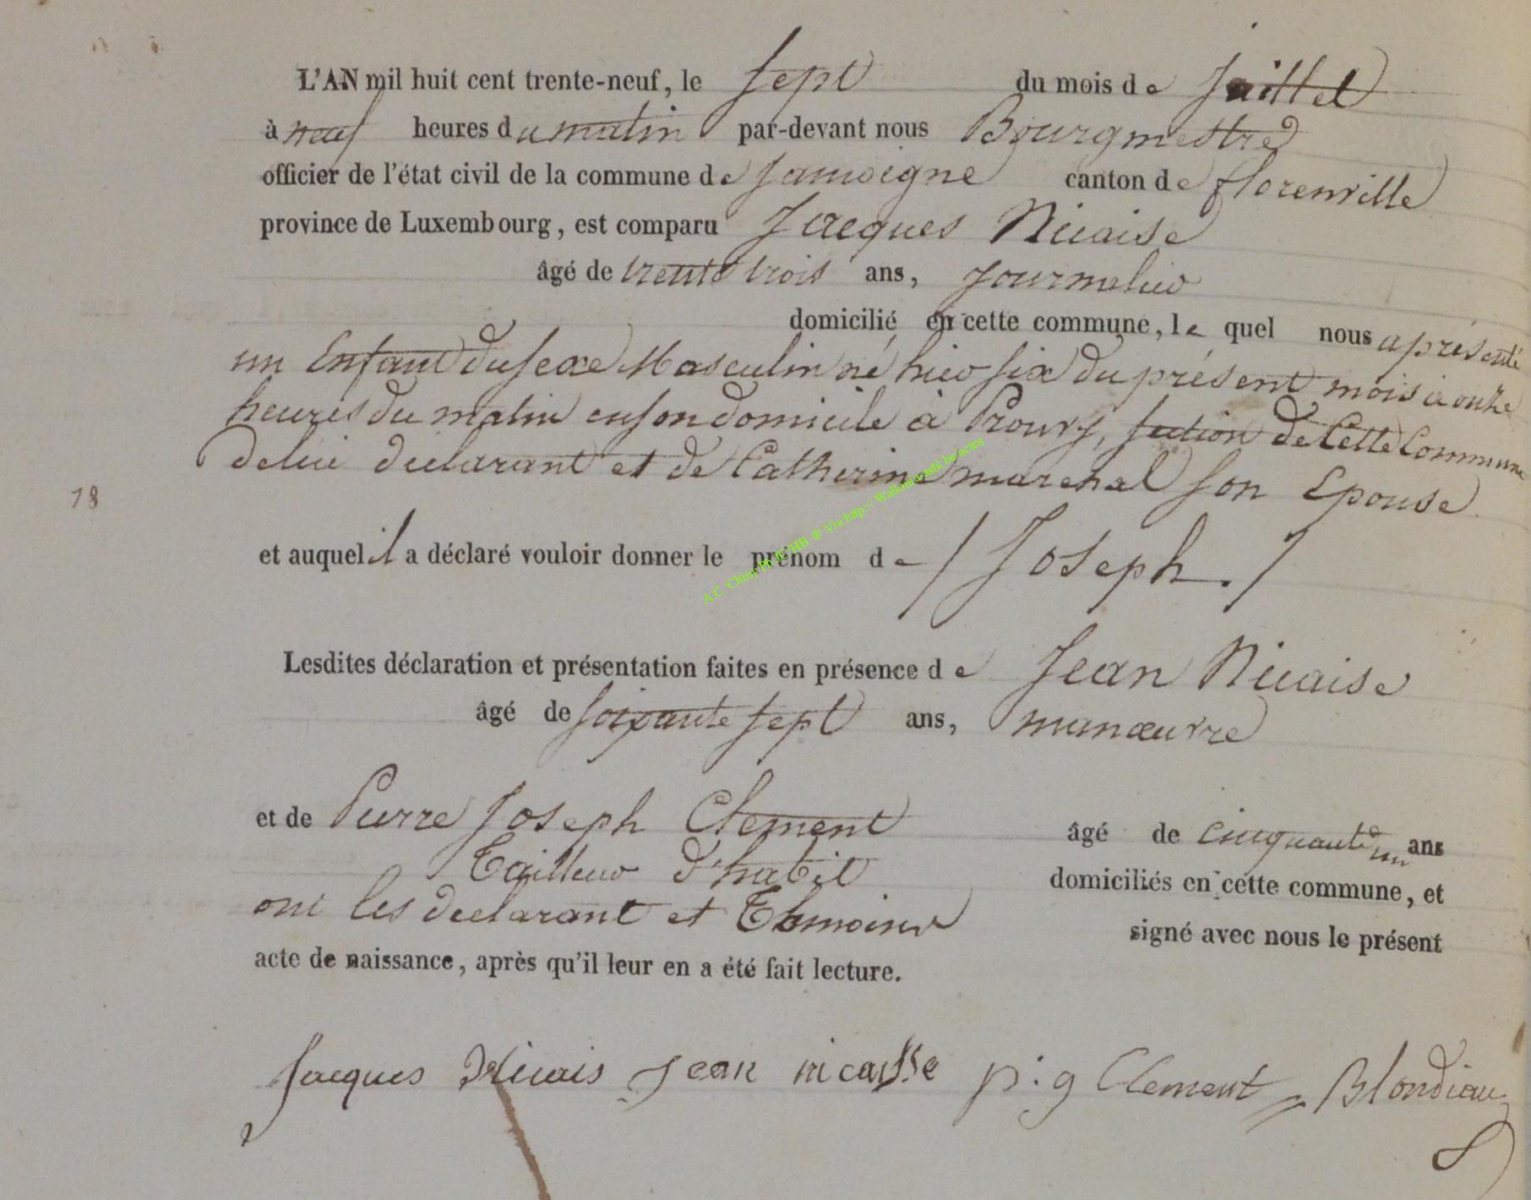 L'AN mil huit cent trente-neuf, le sept du mois de juillet
à neuf heures du matin par-devant nous Bourgmestre
officier de l'état civil de la commune de Jamoigne canton de florenville
province de Luxembourg, est comparu Jacques Nicaise
âgé de trente trois ans, journalier
domicilié en cette commune, le quel nous a présenté
un Enfant du sexe Masculin né hier six du présent mois à onze
heures du matin en son domicile à Prouvy, section de Cette Commune
de lui declarant et de Catherine marchal son Epouse
18
et auquel il a déclaré vouloir donner le prénom de / Joseph. /
Lesdites déclaration et présentation faites en présence de Jean Nicaise
âgé de soixante sept ans, manœuvre
et de Pierre Joseph Clement âgé de cinquante un ans
Tailleur d'habit domiciliés en cette commune, et
ont les declarant et Temoins signé avec nous le présent
acte de naissance, après qu'il leur en a été fait lecture.
Jacques Nicais Jean nicaisse p: j Clement Blondiau